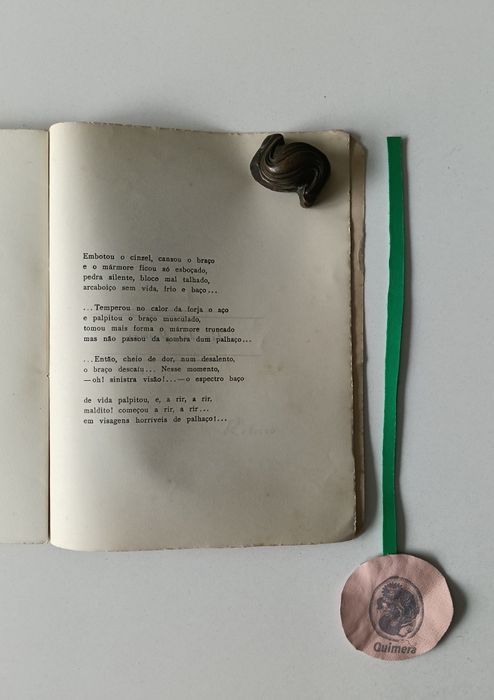 Embotou o cinzel, cansou o braço
e o mármore ficou só esboçado,
pedra silente, bloco mal talhado,
arcaboiço sem vida, frio e baço...
...Temperou no calor da forja o aço
e palpitou o braço musculado,
tomou mais forma o mármore truncado
mas não passou da sombra dum palhaço...
...Então, cheio de dor, num desalento,
o braço descaíu... Nesse momento,
—oh! sinistra visão!...—o espectro baço
de vida palpitou, e, a rir, a rir,
maldito! começou a rir, a rir...
em visagens horríveis de palhaço!...
Quimera